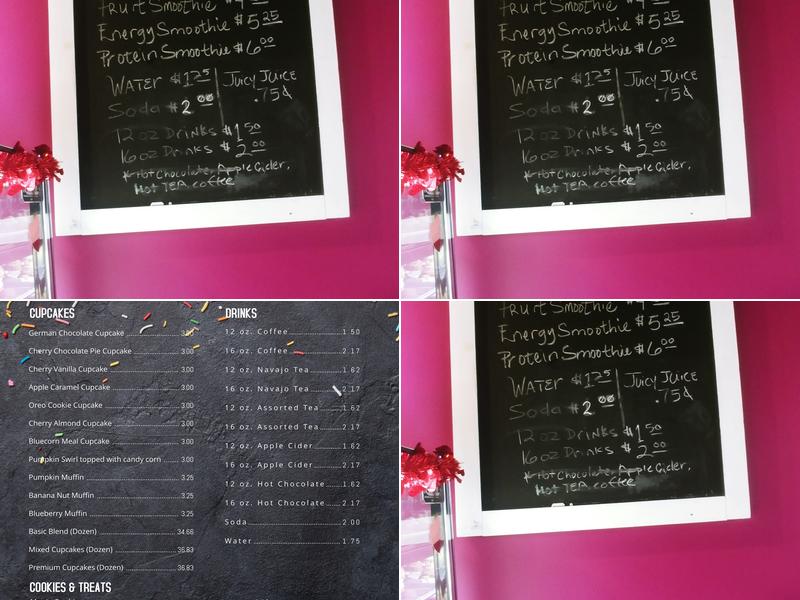 Fruit Smoothie $4
Energy Smoothie $5 25
Protein Smoothie $6 00
Water $1 75
Juicy Juice
.75¢
Soda $2 00
12 oz Drinks $1 50
16 oz Drinks $2 00
*Hot Chocolate, Apple Cider,
Hot Tea, coffee
Fruit Smoothie $4
Energy Smoothie $5 25
Protein Smoothie $6 00
Water $1 75
Juicy Juice
.75¢
Soda $2 00
12 oz Drinks $1 50
16 oz Drinks $2 00
*Hot Chocolate, Apple Cider,
Hot Tea, coffee
CUPCAKES
German Chocolate Cupcake 3.00
Cherry Chocolate Pie Cupcake 3.00
Cherry Vanilla Cupcake 3.00
Apple Caramel Cupcake 3.00
Oreo Cookie Cupcake 3.00
Cherry Almond Cupcake 3.00
Bluecorn Meal Cupcake 3.00
Pumpkin Swirl topped with candy corn 3.00
Pumpkin Muffin 3.25
Banana Nut Muffin 3.25
Blueberry Muffin 3.25
Basic Blend (Dozen) 34.66
Mixed Cupcakes (Dozen) 36.83
Premium Cupcakes (Dozen) 36.83
COOKIES & TREATS
DRINKS
12 oz. Coffee 1.50
16 oz. Coffee 2.17
12 oz. Navajo Tea 1.62
16 oz. Navajo Tea 2.17
12 oz. Assorted Tea 1.62
16 oz. Assorted Tea 2.17
12 oz. Apple Cider 1.62
16 oz. Apple Cider 2.17
12 oz. Hot Chocolate 1.62
16 oz. Hot Chocolate 2.17
Soda 2.00
Water 1.75
Fruit Smoothie $4
Energy Smoothie $5 25
Protein Smoothie $6 00
Water $1 75
Juicy Juice
.75¢
Soda $2 00
12 oz Drinks $1 50
16 oz Drinks $2 00
*Hot Chocolate, Apple Cider,
Hot Tea, coffee